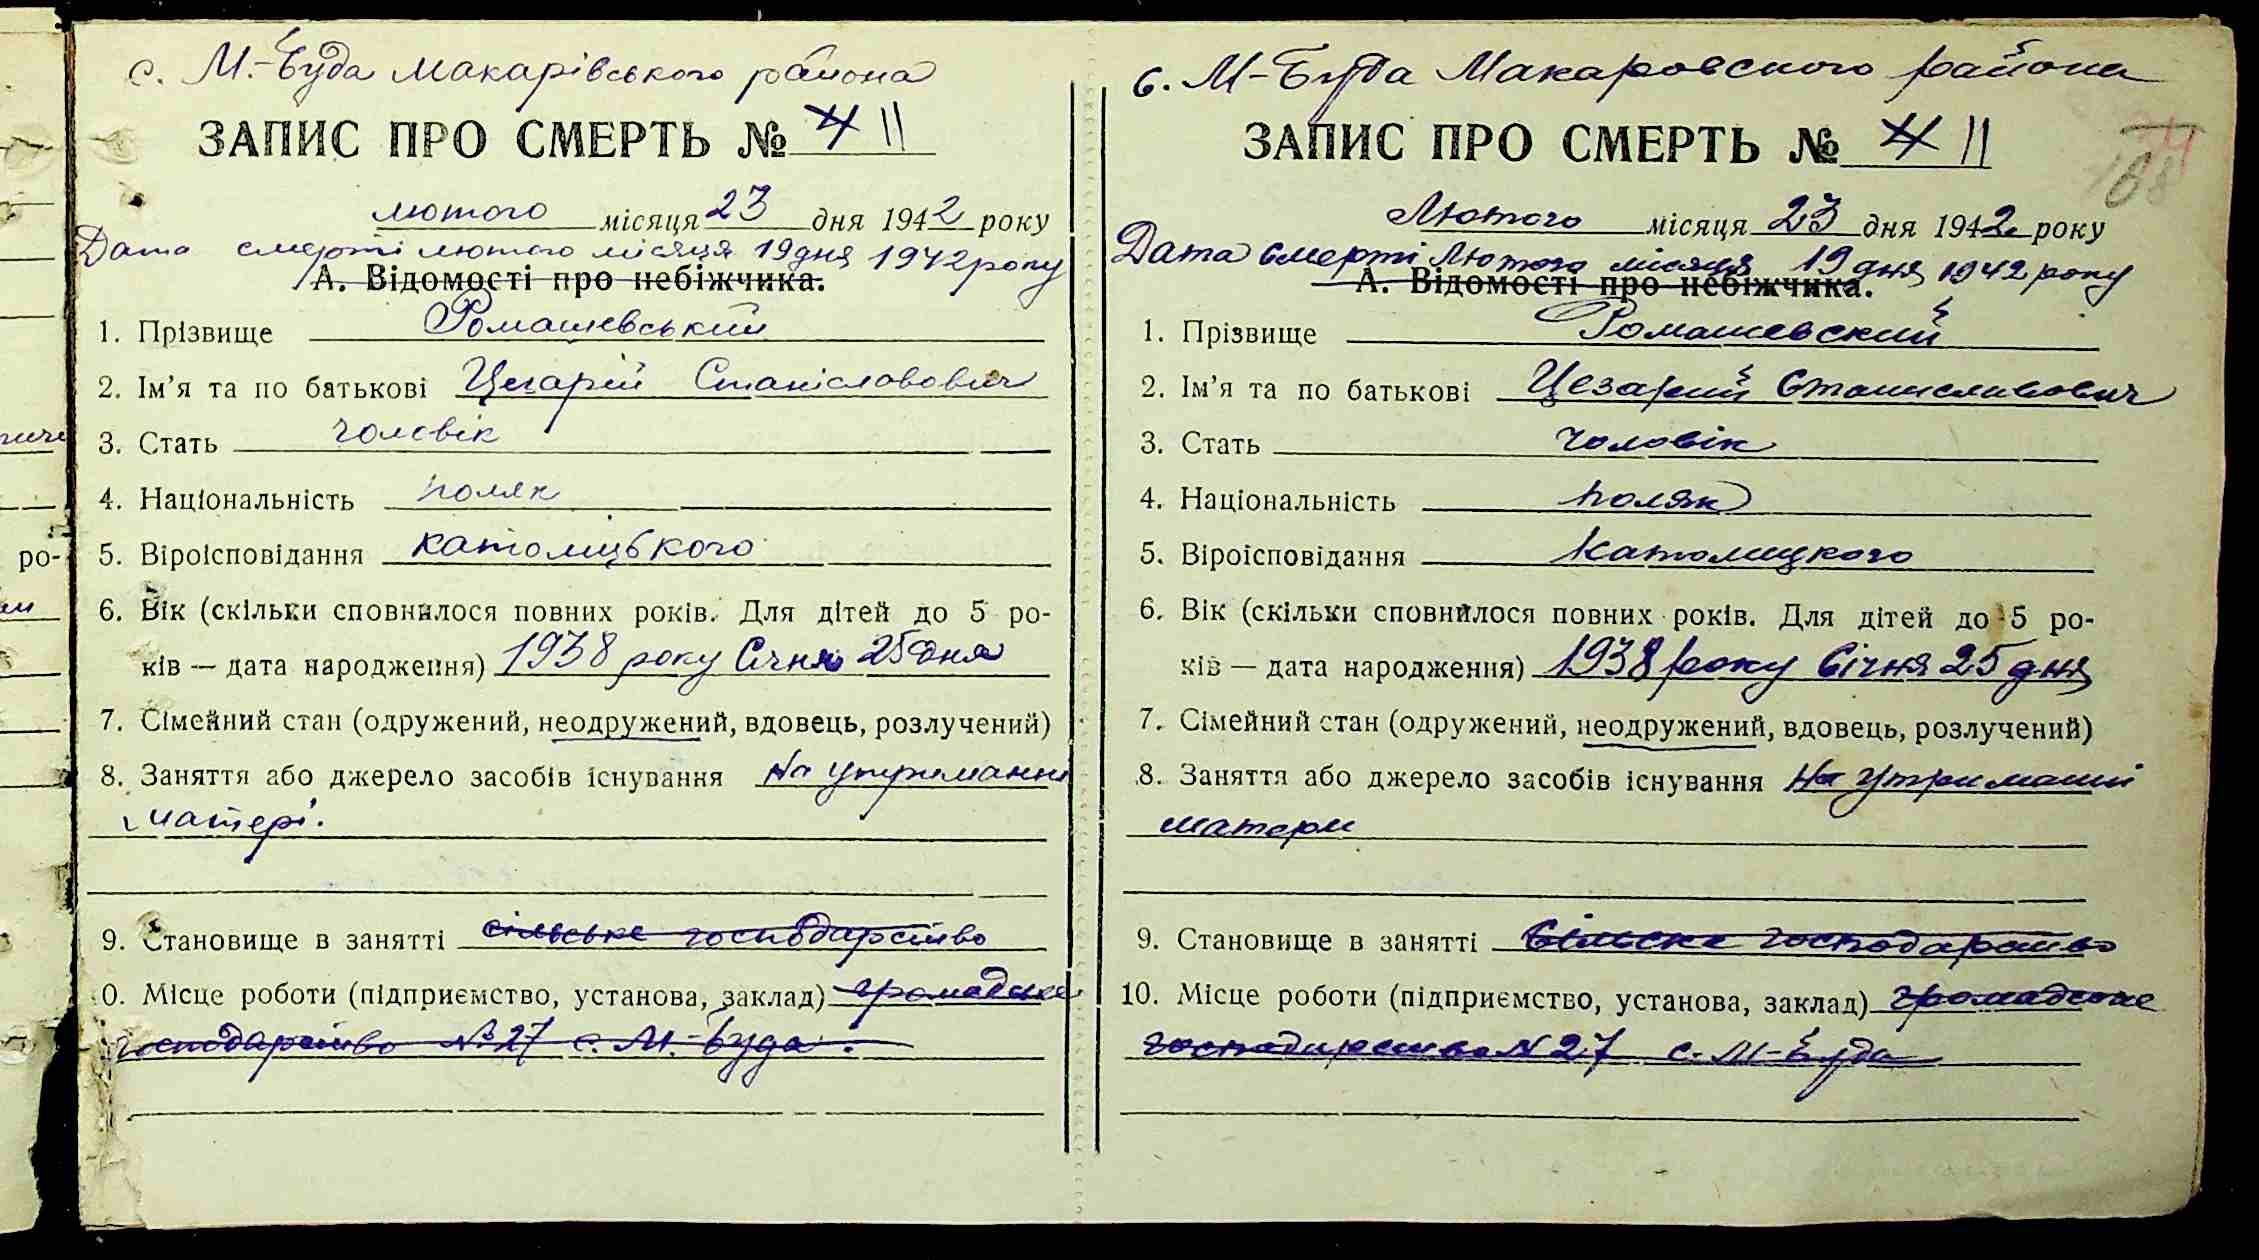 с. М.-Буда Макарівського района
ЗАПИС ПРО СМЕРТЬ № 4 11
лютого місяця 23 дня 1942 року
Дата смерті лютого місяця 19 дня 1942 року
А. Відомості про небіжчика.
1. Прізвище Ромашевський
2. Ім'я та по батькові Цезарій Станіславович
3. Стать чоловік
4. Національність поляк
5. Віроісповідання католицького
6. Вік (скільки сповнилося повних років. Для дітей до 5 ро-
ків — дата народження) 1938 року Січня 25 дня
7. Сімейний стан (одружений, неодружений, вдовець, розлучений)
8. Заняття або джерело засобів існування на утриманні
матері.
9. Становище в занятті сільське господарство
0. Місце роботи (підприємство, установа, заклад) громадське
господарство № 27 с. М.-Буда.
с. М-Буда Макаровского района
ЗАПИС ПРО СМЕРТЬ № 4 11
Лютого місяця 23 дня 1942 року
Дата смерті Лютого місяця 19 дня 1942 року
А. Відомості про небіжчика.
1. Прізвище Ромашевский
2. Ім'я та по батькові Цезарий Станиславович
3. Стать чоловік
4. Національність поляк
5. Віроісповідання Католицкого
6. Вік (скільки сповнилося повних років. Для дітей до 5 ро-
ків — дата народження) 1938 року Січня 25 дня
7. Сімейний стан (одружений, неодружений, вдовець, розлучений)
8. Заняття або джерело засобів існування на утриманні
матери
9. Становище в занятті Сільске господарство
10. Місце роботи (підприємство, установа, заклад) громадское
господарство N 27 с. М-Буда
ро-